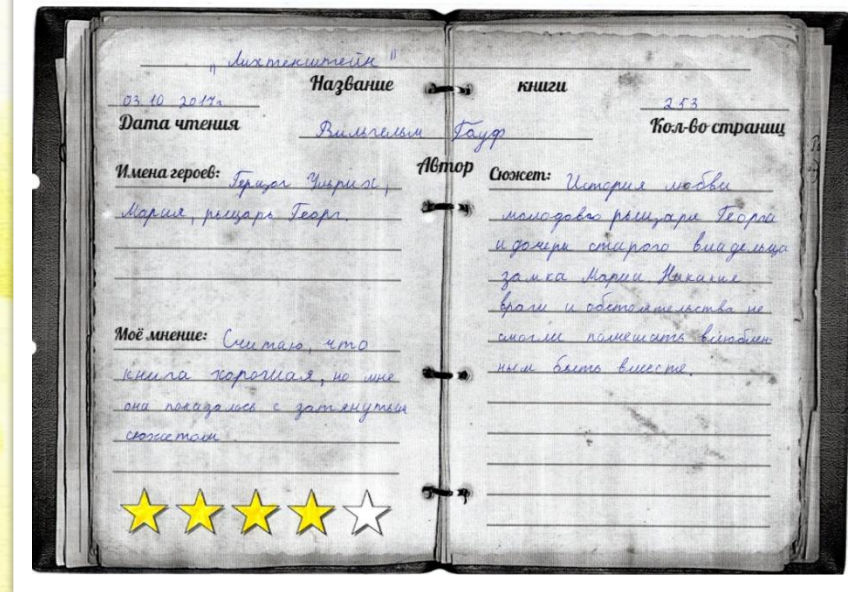 „Лихтенштейн"
Название книги
03.10 2017г
253
Дата чтения
Вильгельм Гауф
Кол-во страниц
Автор
Имена героев: Герцог Ульрих,
Мария, рыцарь Георг.
Моё мнение: Считаю, что
книга хорошая, но мне
она показалась с затянутым
сюжетом.
Сюжет: История любви
молодого рыцаря Георга
и дочери старого владельца
замка Марии. Никакие
враги и обстоятельства не
смогли помешать влюблен-
ным быть вместе.